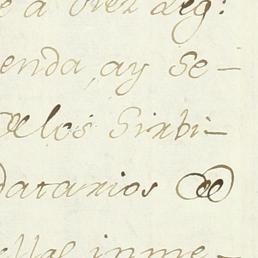 e a diez deg:
enda, ay Se-
delos Sirbi-
datarios de
ellas inme-